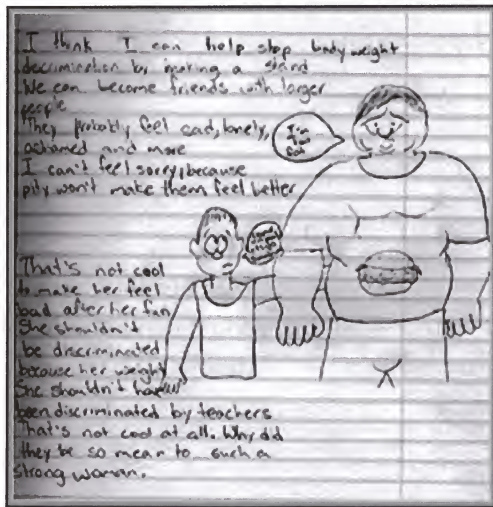 I think I can help stop bodyweight
decimination by making a stand
We can become friends with larger
people
They probably feel sad, lonely,
ashamed and more
I can't feel sorry, because
pity won't make them feel better
I'm
fat
That's not cool
to make her feel
bad after her fan
She shouldn't
be discriminated
because her weight
She shouldn't have
been discriminated by teachers
That's not cool at all. Why did
they be so mean to such a
strong woman.